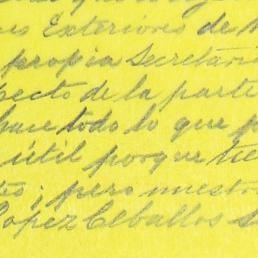 es Exteriores de
propia Secretari
pecto de la parte
hace todo lo que p
útil porque tie
; pero nuestro
Lopez Ceballos